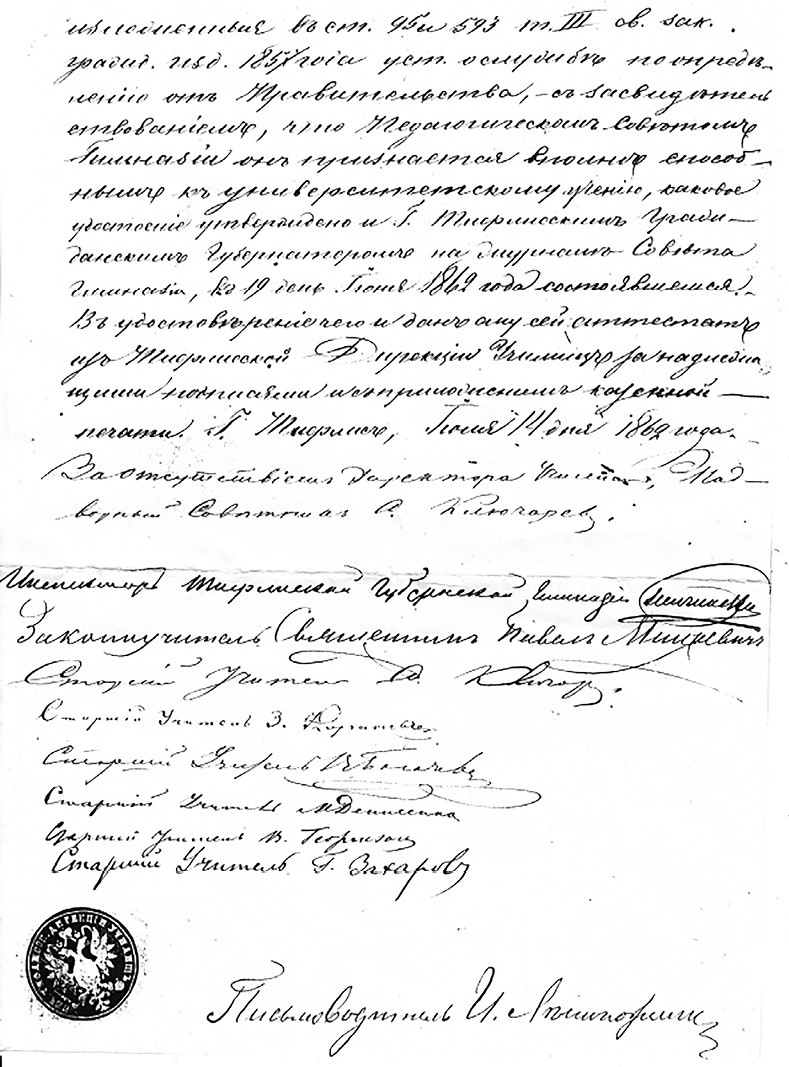 изложенныя въ ст. 95 и 593 т. III св. зак.
гражд. изд. 1857 года уст. о службѣ по опредѣ-
ленію отъ Правительства, – съ засвидѣтель
ствованіемъ, что Педагогическимъ Совѣтомъ
Гимназіи онъ признается вполнѣ способ-
нымъ къ университетскому ученію, каковое
удостоеніе утверждено и Г. Тифлисскимъ Граж-
данскимъ Губернаторомъ на журналѣ Совѣта
Гимназіи, въ 19 день Іюня 1862 года состоявшемся.
Въ удостовѣреніе чего и данъ ему сей аттестатъ
изъ Тифлисской Дирекціи Училищъ за надлежа
щими подписями и съ приложеніемъ казенной
печати. Г. Тифлисъ, Іюля 14 дня 1862 года.
За отсутствіемъ Директора Училищъ, Над-
ворный Совѣтникъ А. Ключаревъ
Инспекторъ Тифлисской Губернской Гимназіи
Законоучитель Священникъ Павелъ Мицкевичъ
Старшій Учитель
Старшій Учитель З.
Старшій Учитель
Старшій Учитель М. Денисенко
Старшій Учитель В.
Старшій Учитель Г. Захаровъ
Письмоводитель И.